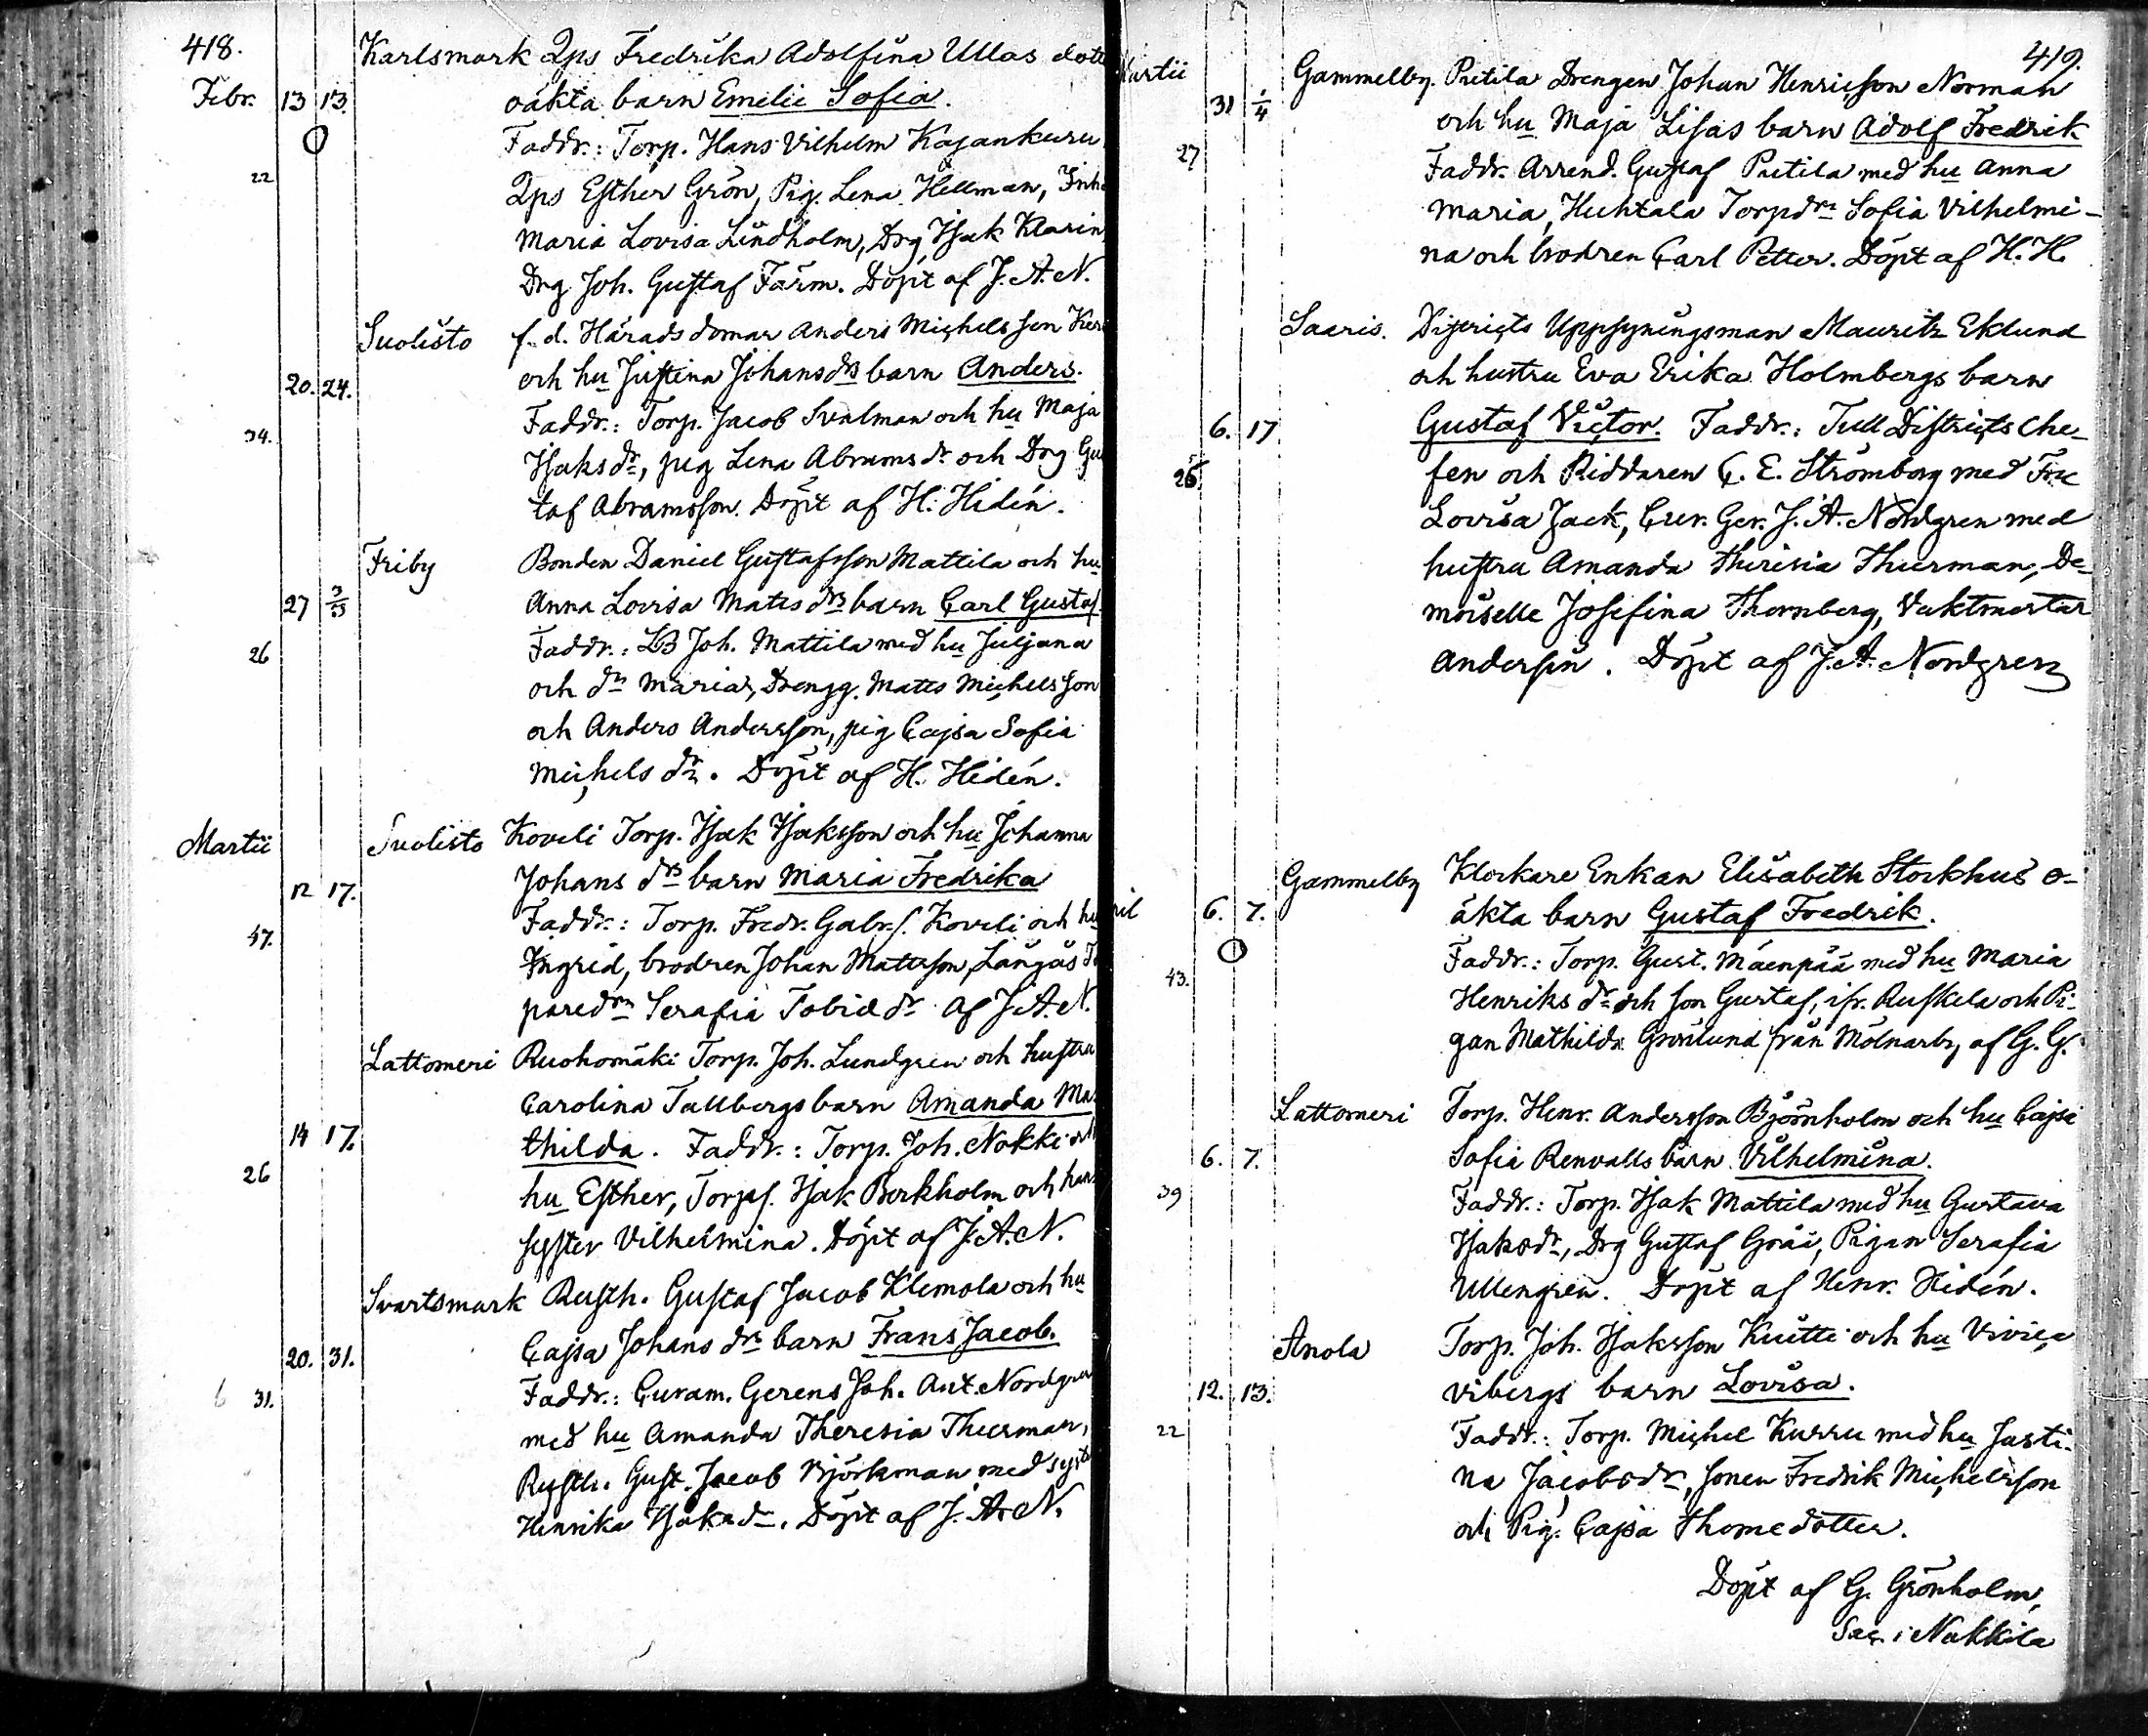 418.
Karlsmark Qps Fredrika Adolfina Ullas dott
Febr. 13 13 oäkta barn Emelie Sofia.
Faddr.: Torp. Hans Vilhelm Kajankuru
22 Qps Esther Grön, Pig. Lena Hellman, Inh
Maria Lovisa Lindholm, Drg Isak Klarin
Drg Joh. Gustaf Färm. Döpt af J. A. N.
Suolisto f. d. Härads domar Anders Michelsson
20. 24. och hu Justina Johansdrs barn Anders.
34. Faddr.: Torp. Jacob Svalman och hu Maja
Isaksdr, pig Lena Abramsdr och Drg Gus
taf Abramsson. Döpt af H. Hidén.
Friby Bonden Daniel Gustafsson Mattila och hu
27 3/3 Anna Lovisa Matts drs barn Carl Gustaf
26 Faddr.: LB Joh. Mattila med hu Juljana
och dr Maria, Drengg. Matts Michelsson
och Anders Andersson, pig Cajsa Sofia
Michels dr. Döpt af H. Hidén.
Martii Suolisto Koveli Torp. Isak Isaksson och hu Johanna
12 17. Johans drs barn Maria Fredrika
47. Faddr.: Torp. Fredr. Gabr.s. Koveli och hu
Ingrid, brodren Johan Mattsson, Långås To
paredr Serafia Tobie dr af J. A. N.
Lattomeri Ruohomäki Torp. Joh. Lundgren och hustru
Carolina Tallbergs barn Amanda Ma
14 17. thilda. Faddr.: Torp. Joh. Nokki och
26 hu Esther, Torps. Isak Berkholm och hans
syster Vilhelmina. Döpt af J. A. N.
Svartsmark Rusth. Gustaf Jacob Klemola och hu
20. 31. Cajsa Johans drs barn Frans Jacob.
31. Faddr.: Curam. Gerens Joh. Ant. Nordgren
med hu Amanda Theresia Thurman,
Rusth. Gust. Jacob Björkman med syst
Henrika Isaksdr. Döpt af J. A. N.
419.
Martii Gammelby. Putila Drengen Johan Henricsson Norman
31 1/4 och hu Maja Lisas barn Adolf Fredrik
27 Faddr. Arrend. Gustaf Putila med hu Anna
Maria, Huhtala Torpdr Sofia Vilhelmi-
na och brodren Carl Petter. Döpt af H. H.
Saaris. Districts Uppsyningsman Mauritz Eklund
och hustru Eva Erika Holmbergs barn
6. 17 Gustaf Victor. Faddr.: Tull Districts Che-
25 fen och Riddaren C. E. Strömborg med Fru
Lovisa Jack, Cur. Ger. J. A. Nordgren med
hustru Amanda Theresia Thurman, De-
moiselle Josefina Thornberg, Vaktmestar
Andersin. Döpt af J. A. Nordgren
Gammelby Klockare Enkan Elisabeth Stockhus o-
ril 6. 7. äkta barn Gustaf Fredrik.
Faddr.: Torp. Gust. Mäenpää med hu Maria
43. Henriks dr och son Gustaf, ifr. Ruskela och Pi-
gan Mathilda Grönlund från Molnarby, af G. G.
Lattomeri Torp. Henr. Andersson Björnholm och hu Cajsa
6. 7. Sofia Renvalls barn Vilhelmina.
39 Faddr.: Torp. Isak Mattila med hu Gustava
Isaksdr, Drg Gustaf Gråi, Pigan Serafia
Ullengren. Döpt af Henr. Hidén.
Anola Torp. Joh. Isaksson Kuitti och hu Vivica
12. 13. Vibergs barn Lovisa.
22 Faddr.: Torp. Michel Kurru med hu Justi-
na Jacobsdr, sonen Fredrik Michelsson
och Pig. Cajsa Thomedotter.
Döpt af G. Grönholm,
Sac. i Nakkila